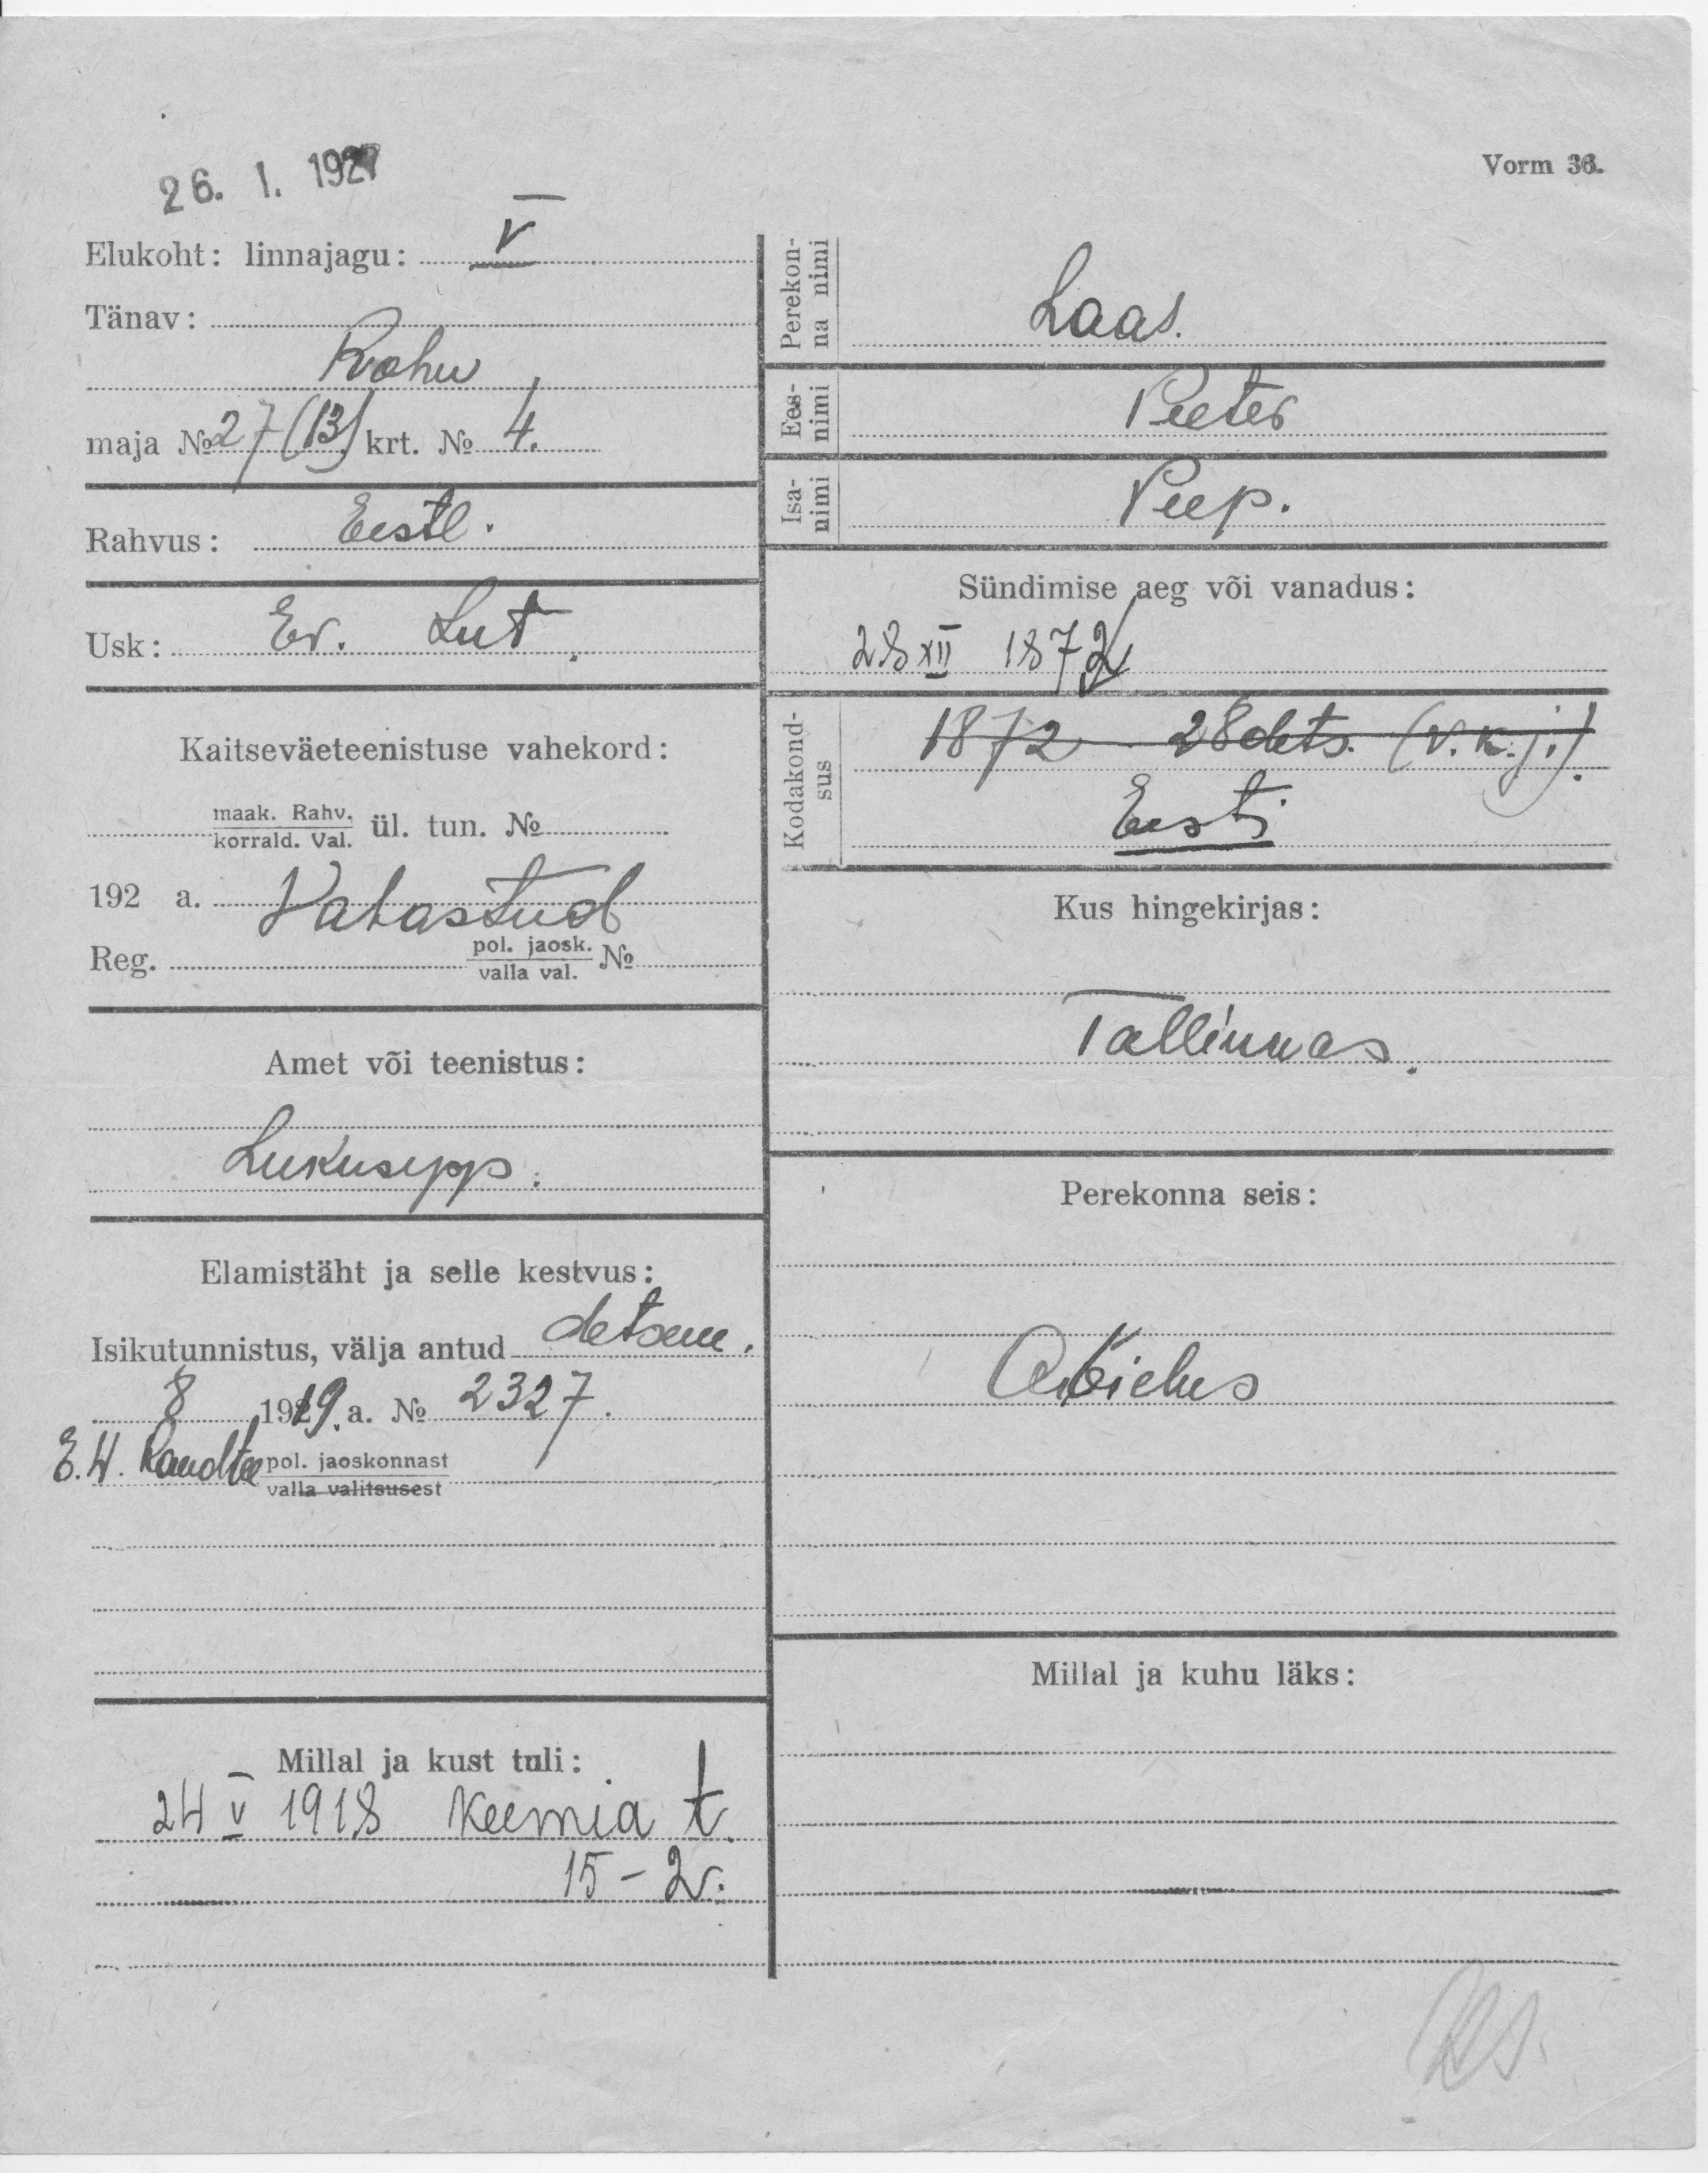 26. I. 1927
Vorm 36.
Elukoht: linnajagu: V
Tänav:
Rohu
maja № 27 (13) krt. № 4.
Rahvus: Eestl.
Usk: Ev. Lut.
Kaitseväeteenistuse vahekord:
maak. Rahv.
korrald. Val. ül. tun. №
192 a. Vabastud
Reg. pol. jaosk.
valla val. №
Amet või teenistus:
Lukusepp.
Elamistäht ja selle kestvus:
Isikutunnistus, välja antud detsem.
8 1919. a. № 2327.
E.W. pol. jaoskonnast
valla valitsusest
Millal ja kust tuli:
24 V 1918 Keemia t.
15 - 2.
Perekon-
na nimi
Laas.
Ees-
nimi
Peeter
Isa-
nimi
Peep.
Sündimise aeg või vanadus:
28 XII 1872
Kodakond-
sus
1872 28 dets. (v.k.j.).
Eesti
Kus hingekirjas:
Tallinnas.
Perekonna seis:
Abielus
Millal ja kuhu läks: